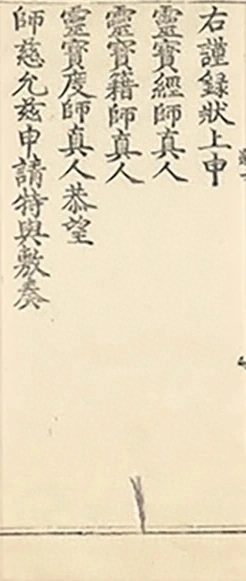 右謹録狀上申
靈寳經師真人
靈寳籍師真人
靈寳度師真人恭望
師慈允兹申請特與敷奏